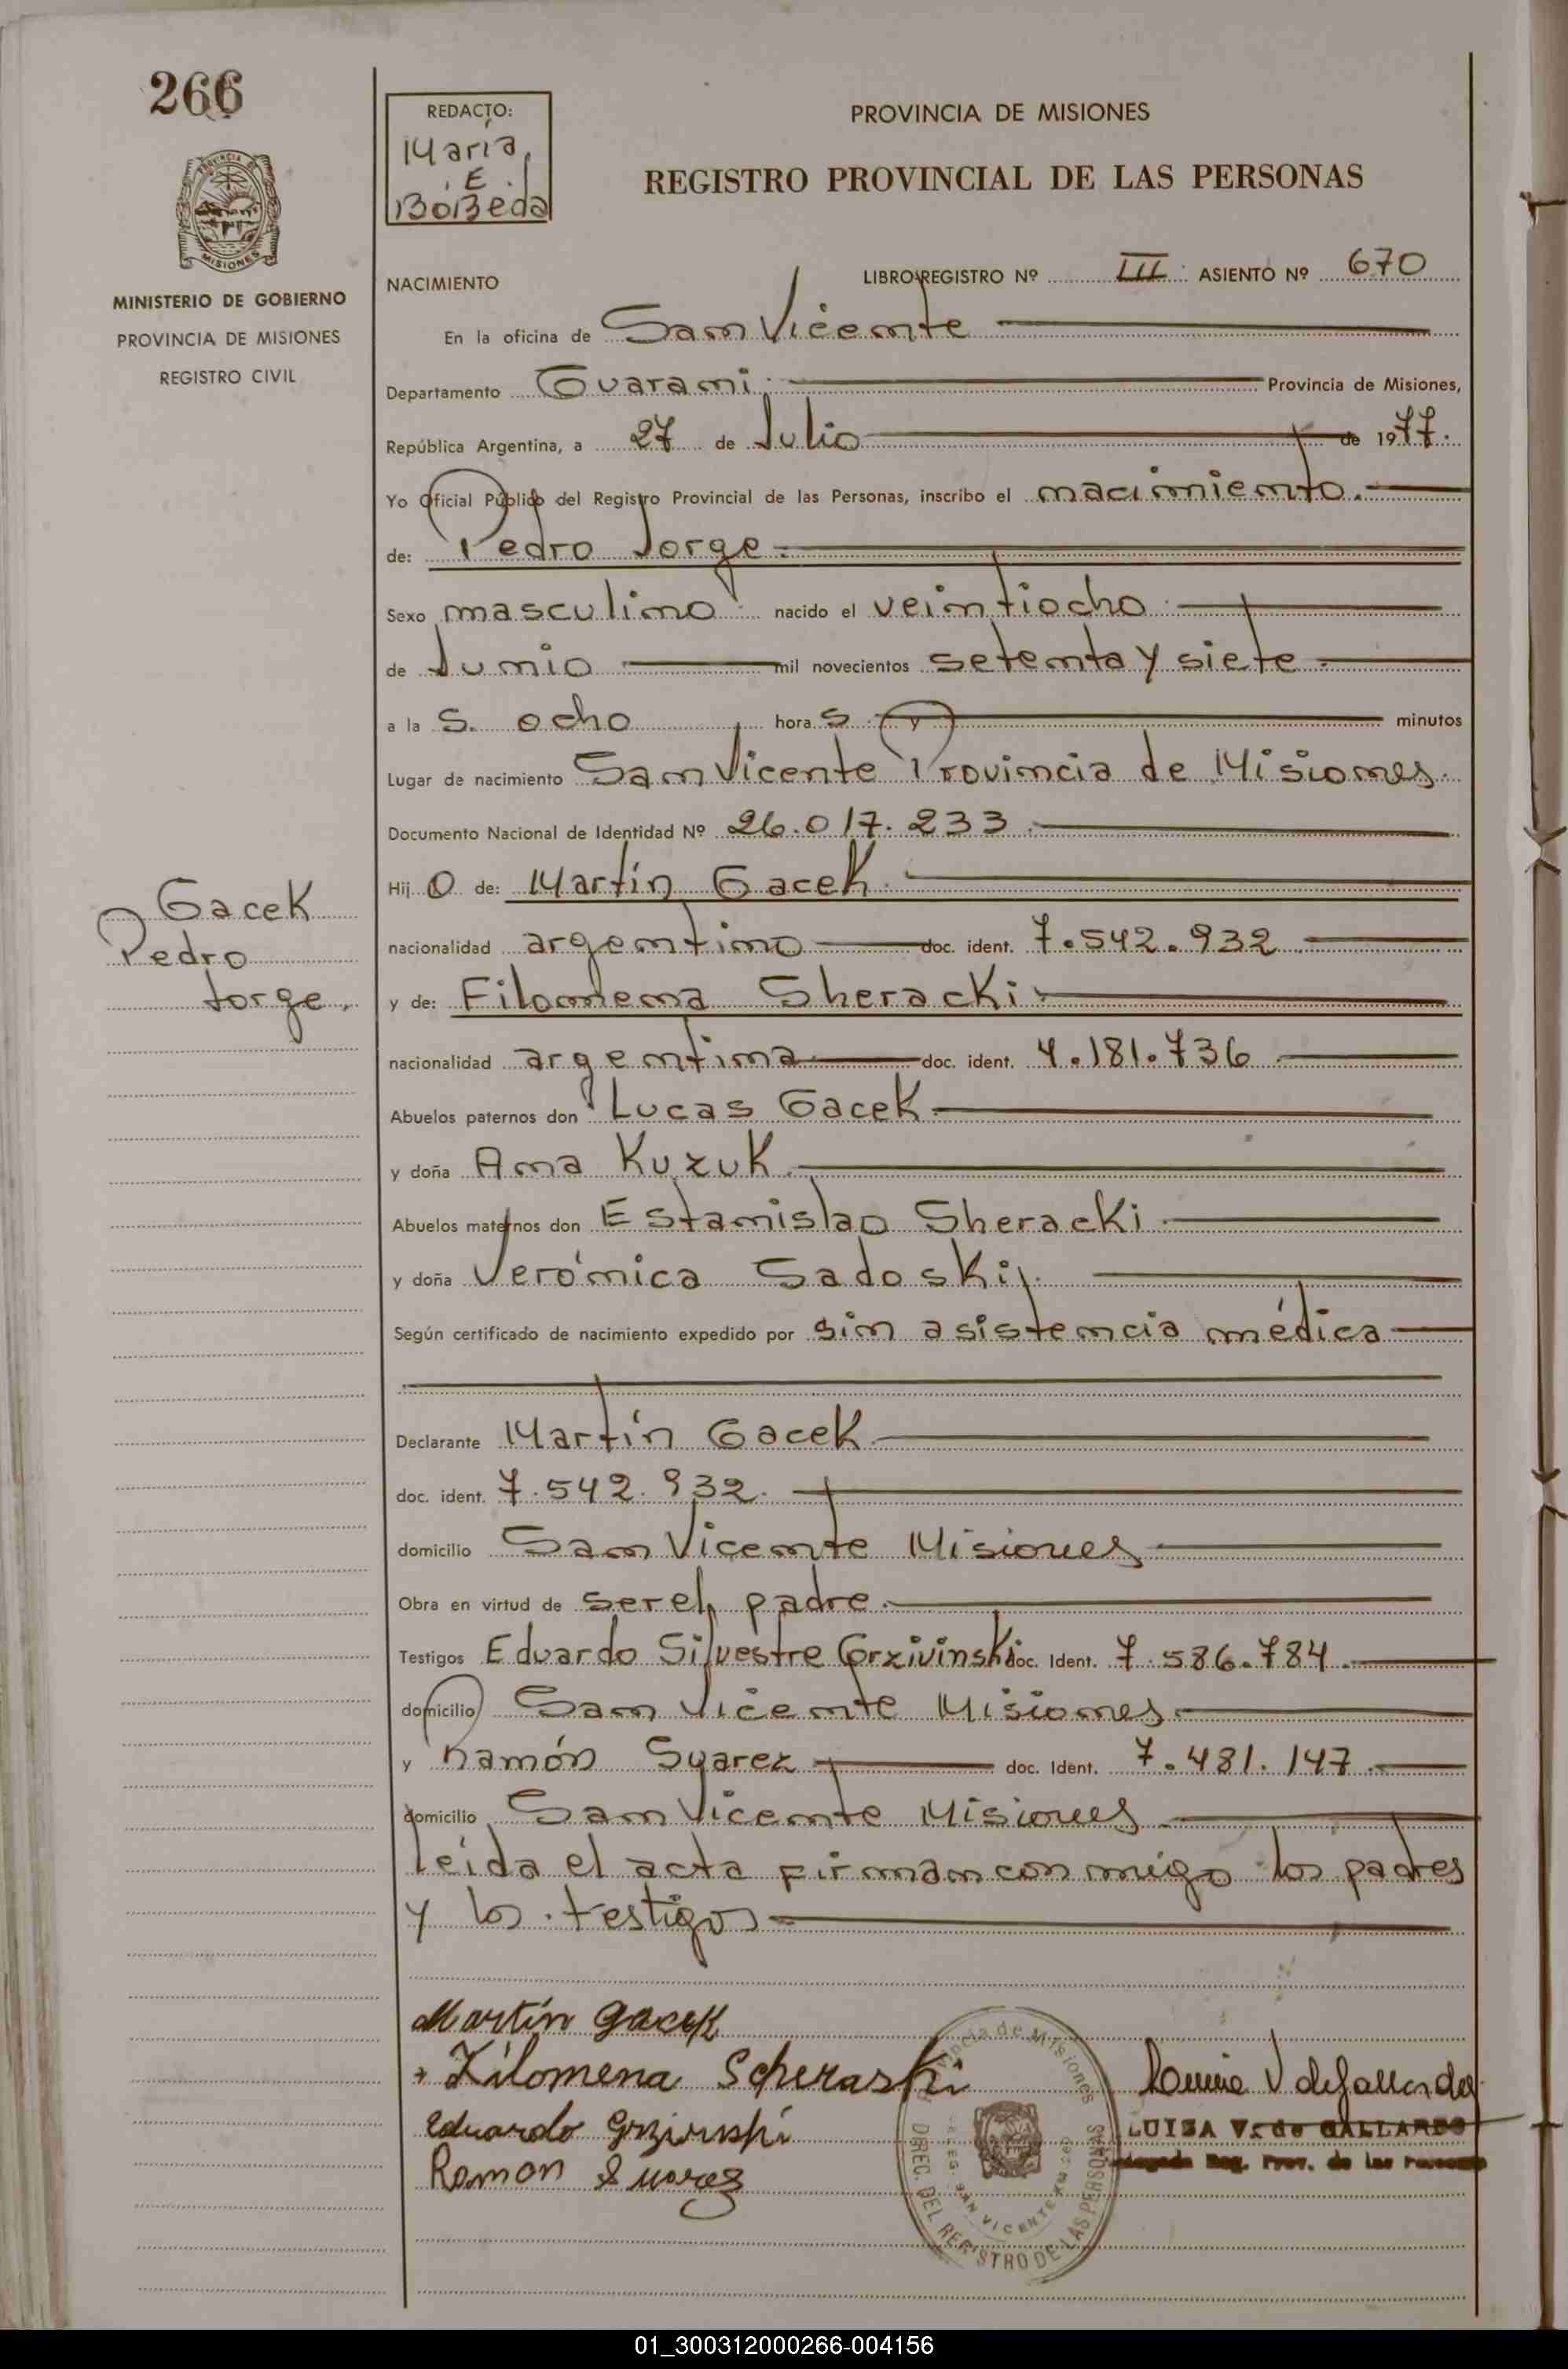 266
REDACTO:
María
E.
BoBeda
PROVINCIA DE MISIONES
REGISTRO PROVINCIAL DE LAS PERSONAS
PROVINCIA DE MISIONES
MINISTERIO DE GOBIERNO
PROVINCIA DE MISIONES
REGISTRO CIVIL
NACIMIENTO
LIBRO REGISTRO Nº III. ASIENTO Nº 670
En la oficina de San Vicente
Departamento Guarani. Provincia de Misiones,
República Argentina, a 27 de Julio de 1977.
Yo Oficial Público del Registro Provincial de las Personas, inscribo el nacimiento.
de: Pedro Jorge
Sexo masculino nacido el veintiocho
de Junio mil novecientos setenta y siete
a las ocho horas y minutos
Lugar de nacimiento San Vicente Provincia de Misiones.
Documento Nacional de Identidad Nº 26.017.233.
Hijo de: Martín Gacek
Gacek
Pedro
Jorge.
nacionalidad argentino doc. ident. 7.542.932
y de: Filomena Sheracki
nacionalidad argentina doc. ident. 4.181.736
Abuelos paternos don Lucas Gacek
y doña Ana Kuzuk
Abuelos maternos don Estanislao Sheracki
y doña Verónica Sadoski.
Según certificado de nacimiento expedido por sin asistencia médica
Declarante Martín Gacek
doc. ident. 7.542.932.
domicilio San Vicente Misiones
Obra en virtud de ser el padre.
Testigos Eduardo Silvestre Grzivinski doc. Ident. 7.586.784.
domicilio San Vicente Misiones
y Ramón Suarez doc. Ident. 7.481.147
domicilio San Vicente Misiones
leída el acta firman con migo los padres
y los testigos
Martín Gacek
Filomena Scheraski
Eduardo Grzivinski
Ramon Suarez
LUISA V. de GALLARDO
Delegada Reg. Prov. de las Personas
Provincia de Misiones
DIREC. DEL REGISTRO DE LAS PERSONAS
SAN VICENTE
01_300312000266-004156